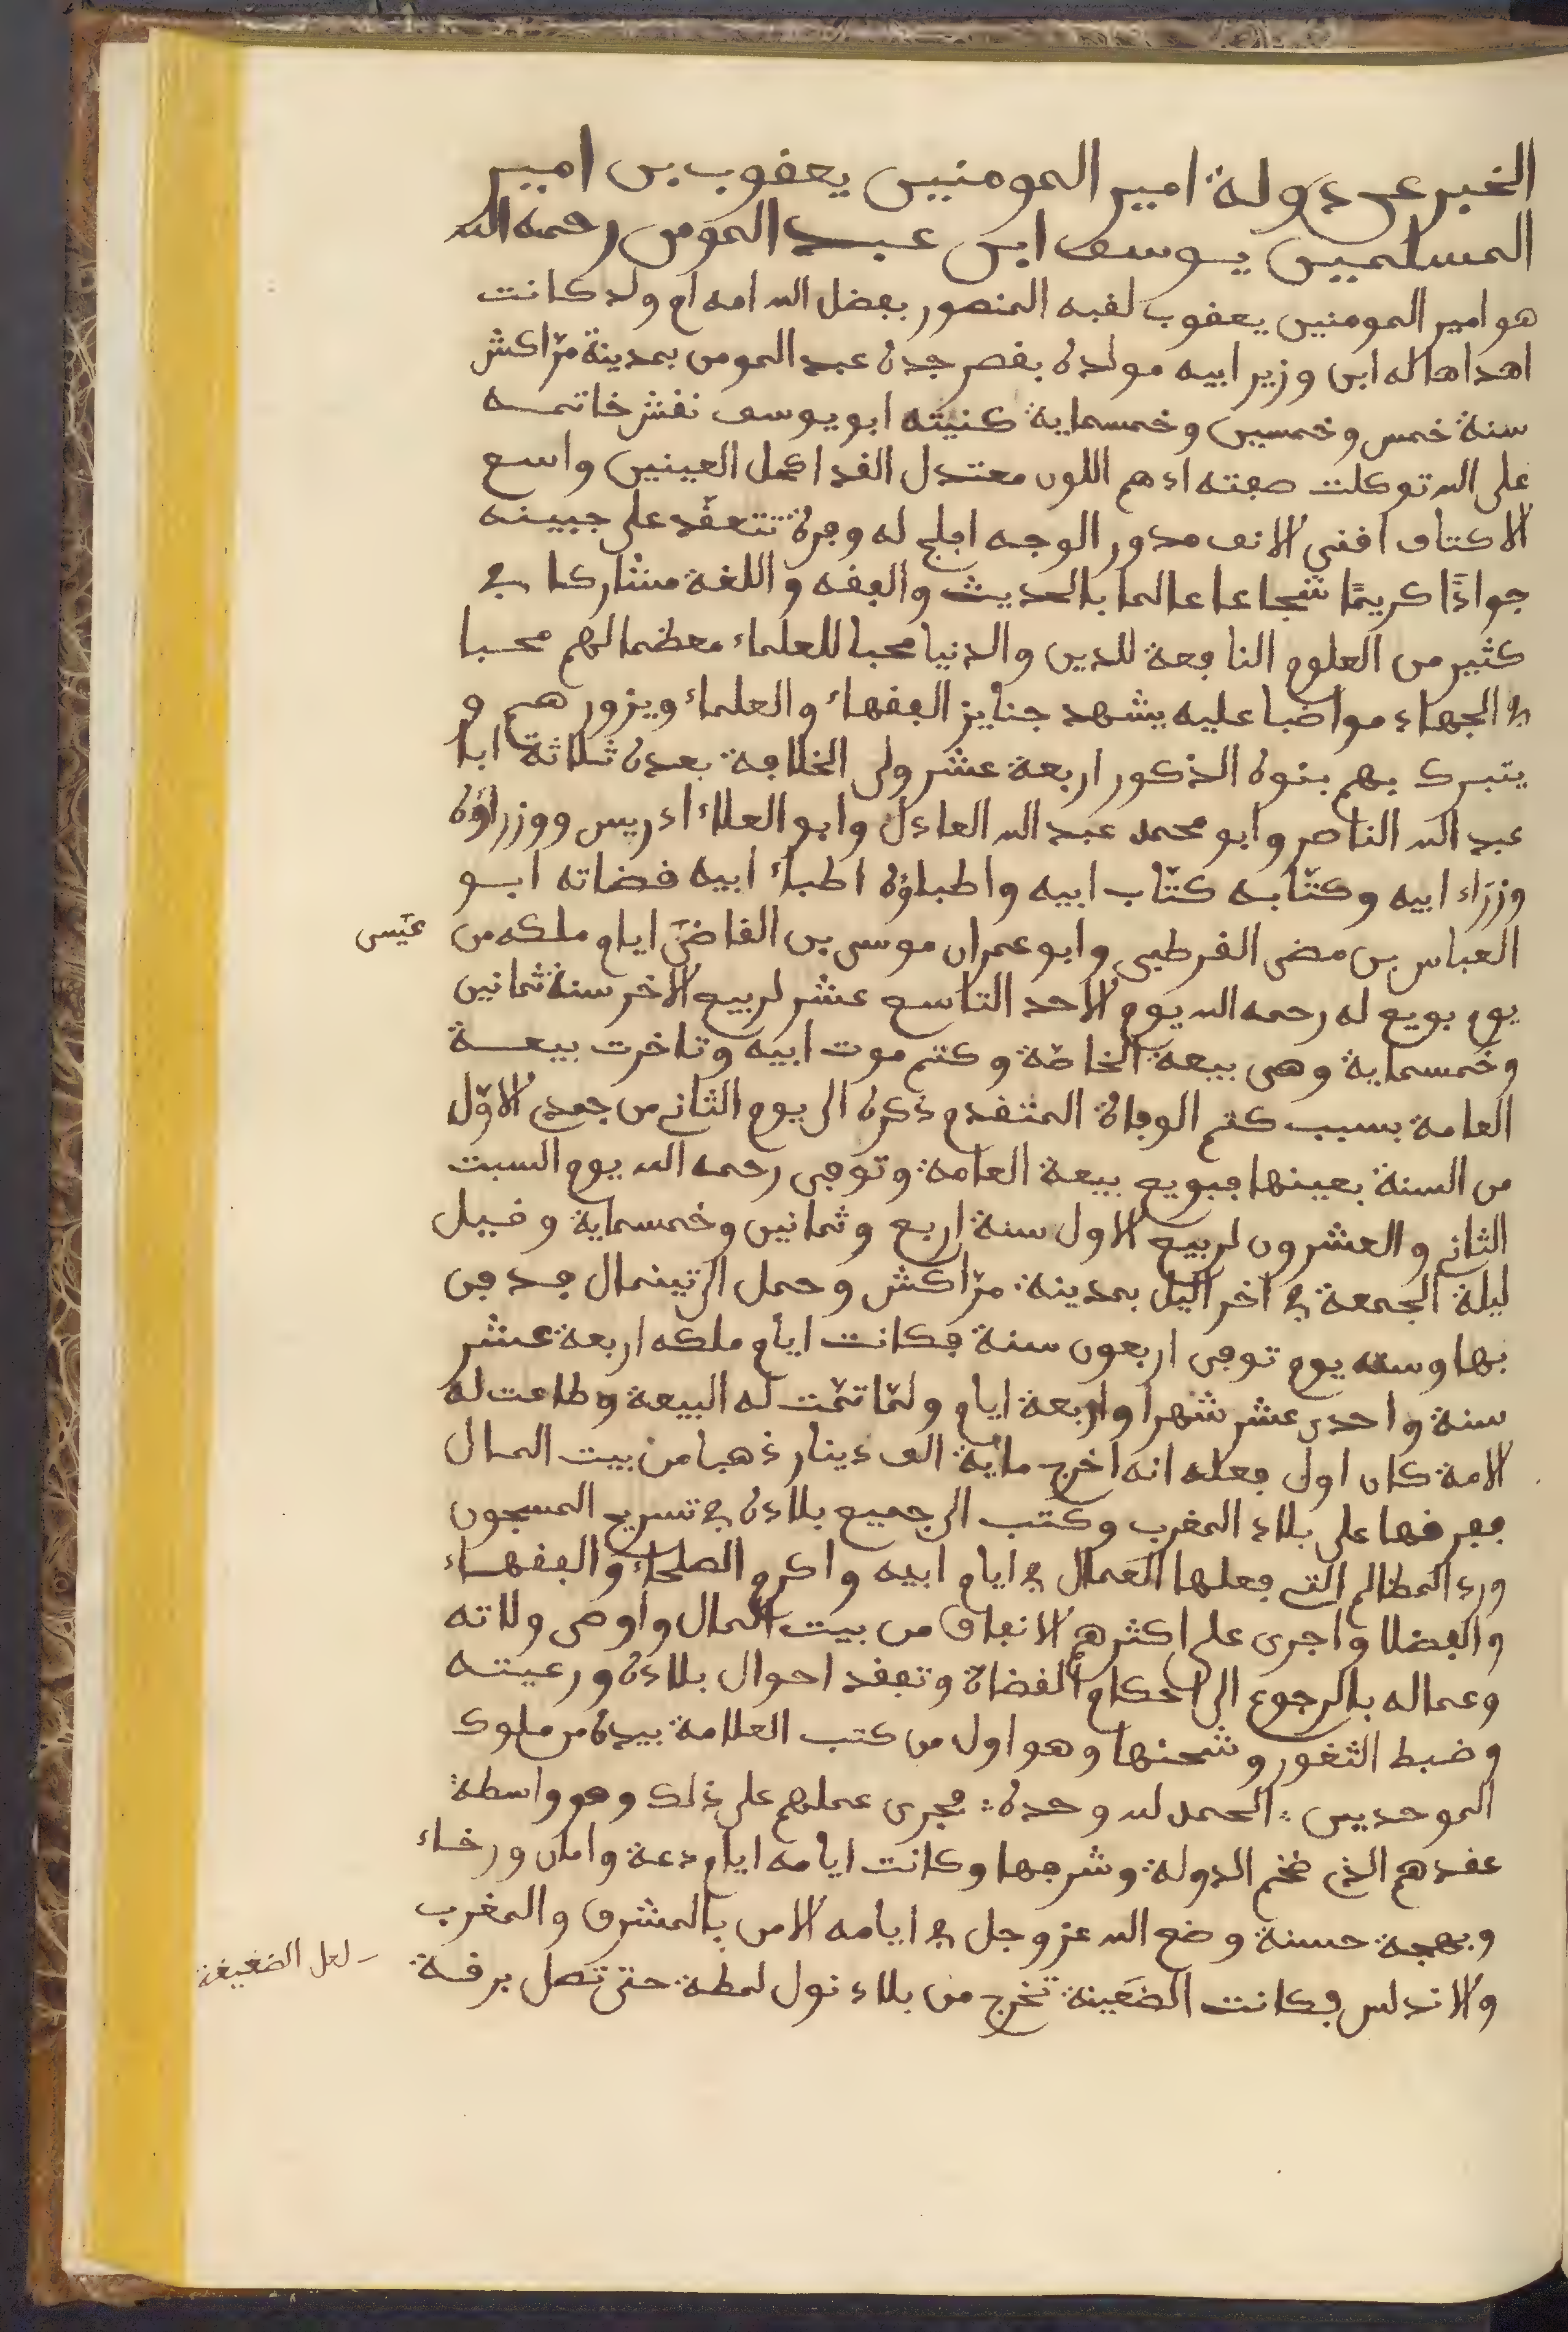 الخبر عن دولة امير المومنين يعقوب بن امير
المسلمين يوسف ابن عبد المومن رحمه الله
هو امير المومنين يعقوب لقبه المنصور بفضل الله امه ام ولد كانت
اهداها له ابن وزير ابيه مولده بقصر جده عبد المومن بمدينة مرّاكش
سنة خمس وخمسين وخمسماية كنيته ابو يوسف نقش خاتمه
على الله توكلت صفته ادهم اللون معتدل القد اكحل العينين واسع
الاكتاف افنى الانف مدور الوجه افلج له وفرة تتعقّد على جبينه
جوادًا كريمًا شجاعا عالما بالحديث والفقه واللغة مشاركا في
كثير من العلوم النافعة للدين والدنيا محبا للعلماء معظما لهم محبا
في الجهاد مواضبا عليه يشهد جنايز الفقهاء والعلماء ويزورهم و
يتبرك بهم بنوه الذكور اربعة عشر ولى الخلافة بعده ثلاثة ابا
عبد الله الناصر وابو محمد عبد الله العادل وابو العلاء ادريس ووزراؤه
وزراء ابيه وكتّابه كتّاب ابيه واطباؤه اطباء ابيه قضاته ابو
العباس بن مضى القرطبى وابو عمران موسى بن القاضى ايام ملكه من
عيسى
يوم بويع له رحمه الله يوم الاحد التاسع عشر لربيع الاخر سنة ثمانين
وخمسماية وهى بيعة الخاصّة وكتم موت ابيه وتاخرت بيعة
العامة بسبب كتم الوفاة المتقدم ذكره الى يوم الثانى من جمدى الاوّل
من السنة بعينها فبويع بيعة العامة وتوفى رحمه الله يوم السبت
الثانى والعشرون لربيع الاول سنة اربع وثمانين وخمسماية وقيل
ليلة الجمعة في اخر اليل بمدينة مرّاكش وحمل الى تينمال فدفن
بها وسنه يوم توفى اربعون سنة فكانت ايام ملكه اربعة عشر
سنة واحدى عشر شهرا واربعة ايام ولمّا تمّت له البيعة وطاعت له
الامة كان اول فعله انه اخرج ماية الف دينار ذهبا من بيت المال
ففرقها على بلاد المغرب وكتب الى جميع بلاده في تسريح المسجون
ورد المظالم التى فعلها العمال في ايام ابيه واكرم الصلحاء والفقهاء
والفضلا واجرى على اكثرهم الانفاق من بيت المال واوصى ولاته
وعماله بالرجوع الى احكام القضاة وتفقد احوال بلاده ورعيته
وضبط الثغور وشحنها وهو اول من كتب العلامة بيده من ملوك
الموحدين ∴ الحمد لله وحده ∴ فجرى عملهم على ذلك وهو واسطة
عقدهم الذى ضخم الدولة وشرفها وكانت ايامه ايام دعة وامان ورخاء
وبهجة حسنة وضع الله عز وجل في ايامه الامن بالمشرق والمغرب
والاندلس فكانت الضعينة تخرج من بلاد نول لمطة حتى تصل برقة
لعل الضعيفة